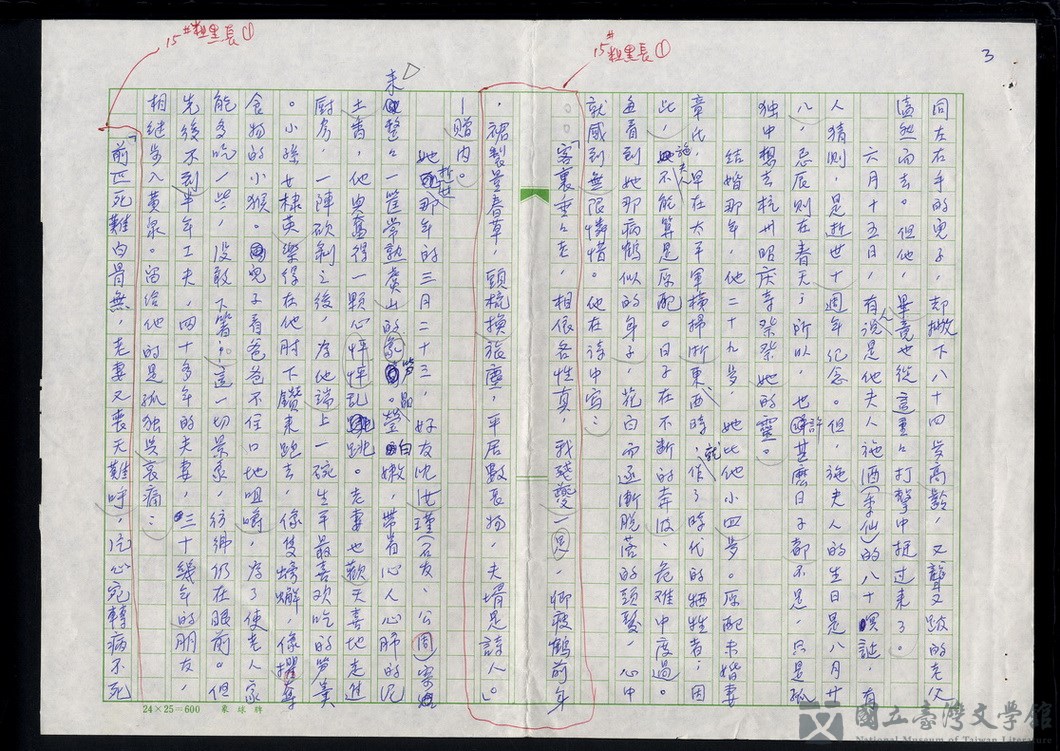 3
15#粗黑長①
15#粗黑長①
同左右手的兒子，却撇下八十四歲高齡，又聾又跛的老父
溘然而去。但他，畢竟也從這重重打擊中挺過來了。
六月十五日，有人說是他夫人施酒（季仙）的八十冥誕，有
人猜則，是逝世十週年紀念。但，施夫人的生日是八月廿
八，忌辰則在春天；所以，也許甚麼日子都不是，只是孤
獨中想去杭州昭慶寺祭祭她的靈。
結婚那年，他二十九歲，她比他小四歲。原配未婚妻
章氏，早在太平軍橫掃浙東、西時，就作了時代的犧牲者，因
此，施夫人不能算是原配。日子在不斷的奔波、危難中度過。
每看到她那病鶴似的身子，花白而逐漸脫落的頭髮，心中
就感到無限憐惜。他在詩中寫：
「客裏重重老，相依各性真，我殘夔一足，卿瘦鶴前身
，裙製量春草，頭梳損旅塵，平居數長物，夫壻是詩人。」
—贈內。
她逝世那年的三月二十三，好友沈汝瑾（石友、公周）寄
來整整一筐常熟虞山的冢筍。瑩晶白嫩，帶着沁人心肺的泥
土香，他興奮得一顆心怦怦亂跳。老妻也歡天喜地走進
廚房，一陣砍剁之後，為他端上一碗生平最喜歡吃的筍羹
。小孫女棣英，樂得在他肘下鑽來跑去，像隻螃蠏，像攫奪
食物的小猴。兒子看爸爸不住口地咀嚼，為了使老人家
能多吃一些，沒敢下箸…這一切景象，彷彿仍在眼前。但
先後不到半年工夫，四十多年的夫妻，三十幾年的朋友，
相繼步入黃泉。留給他的是孤獨與哀痛：
「前匹死難白骨無，老妻又喪天難呼，沉心宛轉病不死
24×25=600 象球牌
國立臺灣文學館
National Museum of Taiwan Literature